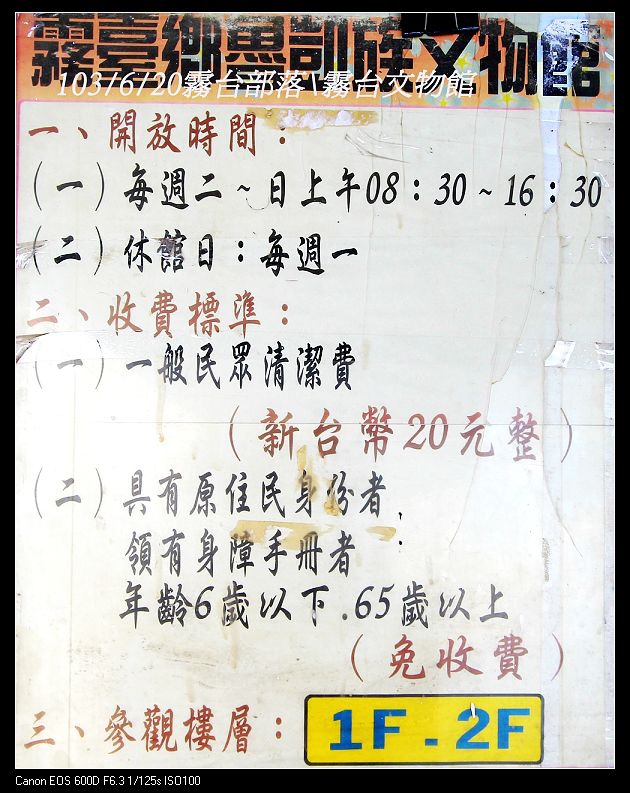 霧臺鄉魯凱族文物館
103/6/20霧台部落\霧台文物館
一、開放時間：
（一）每週二～日上午08：30～16：30
（二）休館日：每週一
二、收費標準：
（一）一般民眾清潔費
（新台幣20元整）
（二）具有原住民身份者
領有身障手冊者
年齡6歲以下.65歲以上
（免收費）
三、參觀樓層：1F.2F
Canon EOS 600D F6.3 1/125s ISO100